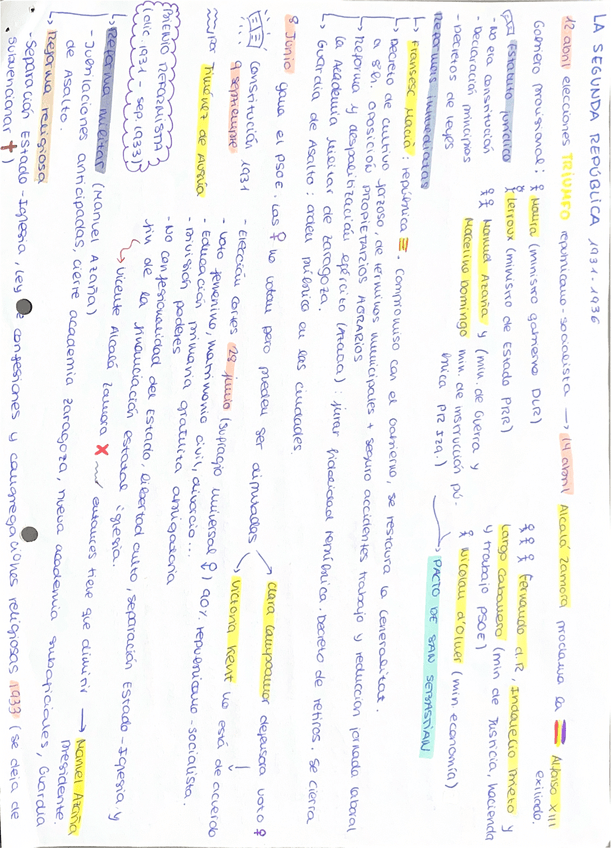 LA SEGUNDA REPÚBLICA 1931-1936
12 abril elecciones TRIUNFO republicano-socialista → 14 abril Alcalá Zamora proclama la Alfonso XIII exiliado.
Gobierno provisional: Maura (ministro gobierno DLR)
Lerroux (ministro de Estado PRR)
Manuel Azaña y (min. de Guerra y
Marcelino Domingo min. de instrucción pública PR Izq.)
Fernando d.R, Indalecio Prieto y
Largo Caballero (min de Justicia, hacienda
y trabajo PSOE)
Nicolau d'Olwer (min economía)
→ PACTO DE SAN SEBASTIÁN
Estatuto jurídico
- No era constitución
- Declaración principios
- Decretos de leyes
Reformas inmediatas
↳ Francesc Macià: república. Compromiso con el gobierno, se restaura la Generalitat.
↳ Decreto de cultivo forzoso, de terminos municipales + seguro accidentes trabajo y reducción jornada laboral
a 8h. oposición PROPIETARIOS AGRARIOS
↳ Reforma y despolitización ejército (Azaña): jurar fidelidad república. Decreto de retiros. Se cierra
la Academia Militar de Zaragoza.
↳ Guardia de Asalto: orden público en las ciudades.
8 Junio gana el PSOE. Las ♀ no votan pero pueden ser diputadas
Clara Campoamor defensora voto ♀
Victoria Kent no está de acuerdo
Constitución 1931
9 septiembre
por Jiménez de Asúa
- Elección cortes 28 junio (sufragio universal ♀) 90% republicano-socialista.
- Voto femenino, matrimonio civil, divorcio...
- Educación primaria gratuita obligatoria
- División poderes
- No confesionalidad del Estado, libertad culto, separación Estado-Iglesia y
fin de la financiación estatal iglesia.
↳ Niceto Alcalá Zamora entonces tiene que dimitir → Manuel Azaña presidente.
BIENIO REFORMISTA
(dic. 1931 - sep. 1933)
↳ Reforma militar (Manuel Azaña)
- Jubilaciones anticipadas, cierre academia zaragoza, nueva academia suboficiales, Guardia
de Asalto.
↳ Reforma religiosa
- Separación Estado-Iglesia, ley de confesiones y congregaciones religiosas 1933 (se deja de
subvencionar)